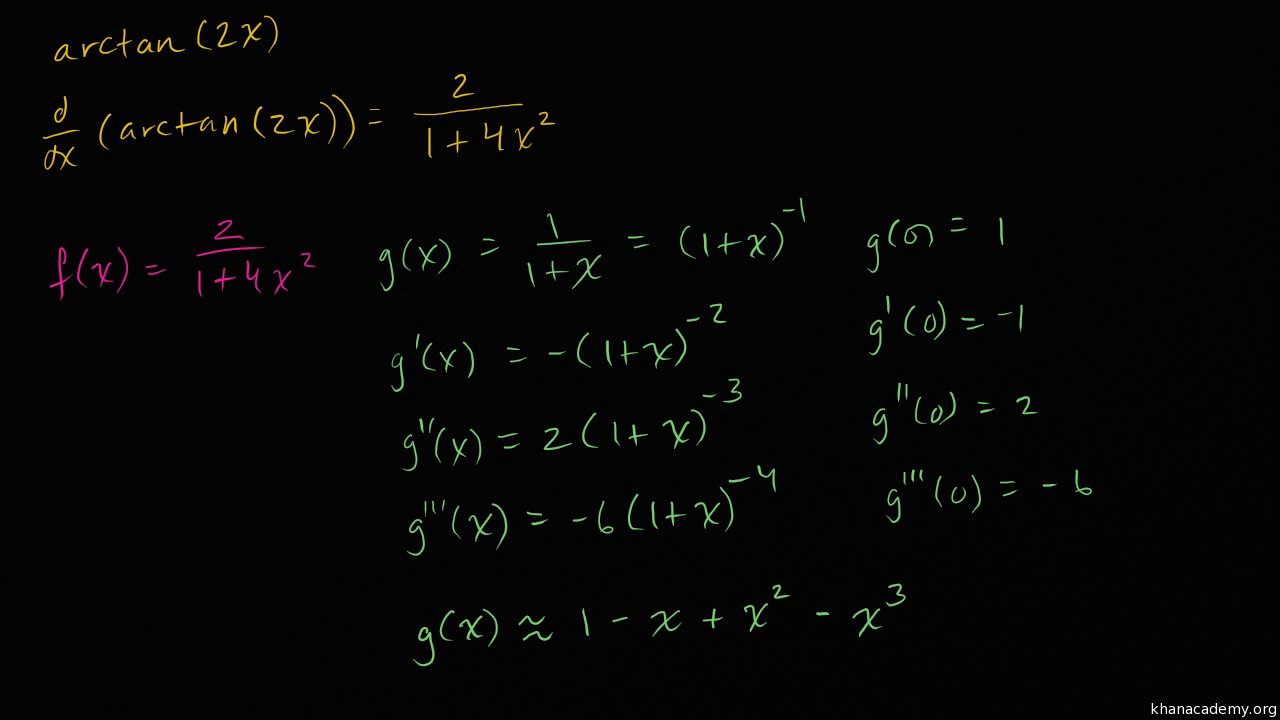 arctan(2x)
d/dx (arctan(2x)) = 2/(1+4x²)
f(x) = 2/(1+4x²)   g(x) = 1/(1+x) = (1+x)⁻¹   g(0) = 1
g'(x) = -(1+x)⁻²   g'(0) = -1
g''(x) = 2(1+x)⁻³   g''(0) = 2
g'''(x) = -6(1+x)⁻⁴   g'''(0) = -6
g(x) ≈ 1 - x + x² - x³
khanacademy.org